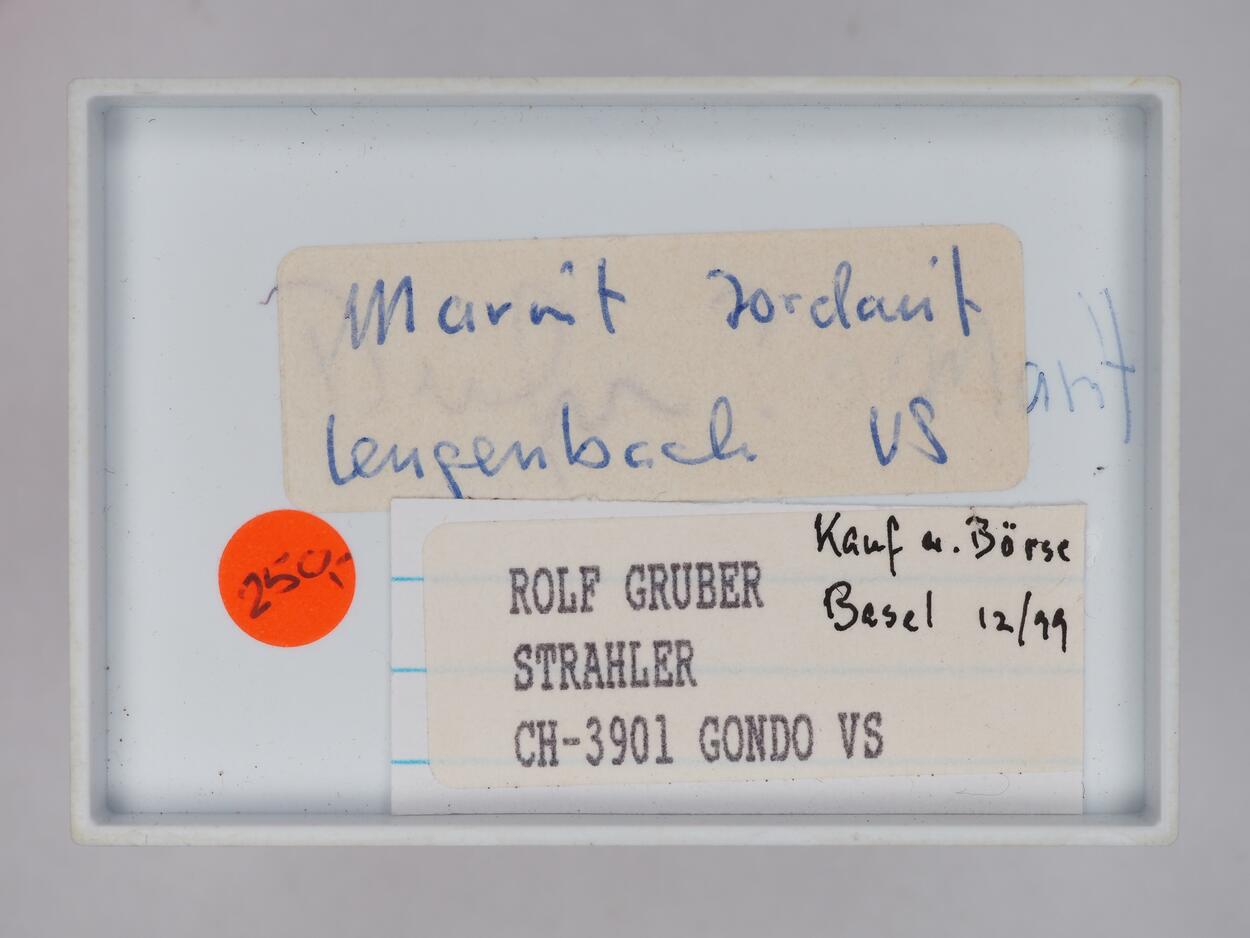 Marrit Jordanit
Lengenbach VS
250,-
Kauf a. Börse
Basel 12/99
ROLF GRUBER
STRAHLER
CH-3901 GONDO VS